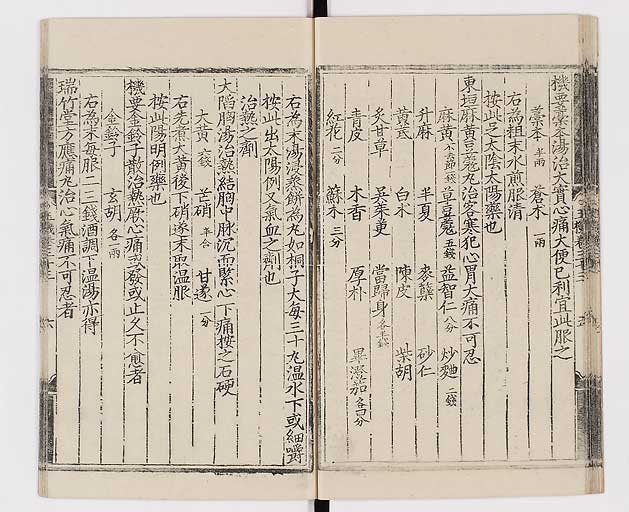 機要藁本湯治大實心痛大便已利宜此服之
藁本半兩 蒼朮一兩
右為粗末水煎服清
按此足太陰太陽藥也
東垣麻黃豆蔲丸治客寒犯心胃大痛不可忍
麻黃 草豆蔲五錢 益智仁八分 炒麯二錢
升麻 半夏 麥蘖 砂仁
黃芪 白朮 陳皮 柴胡
炙甘草 吳茱萸 當歸身各五錢
青皮 木香 厚朴 蓽澄茄各四分
紅花二分 蘇木三分
右為末湯浸蒸餅為丸如桐子大每三十丸温水下或細嚼
按此出太陽例又氣血之劑也
治熱之劑
大陷胸湯治熱結胸中脉沉而緊心下痛按之石硬
大黃 芒硝 甘遂一分
右先煮大黃後下硝遂末取温服
按此陽明例藥也
機要金鈴子散治熱厥心痛或發或止久不愈者
金鈴子 玄胡各一兩
右為末每服二三錢酒調下温湯亦得
瑞竹堂方應痛丸治心氣痛不可忍者
六